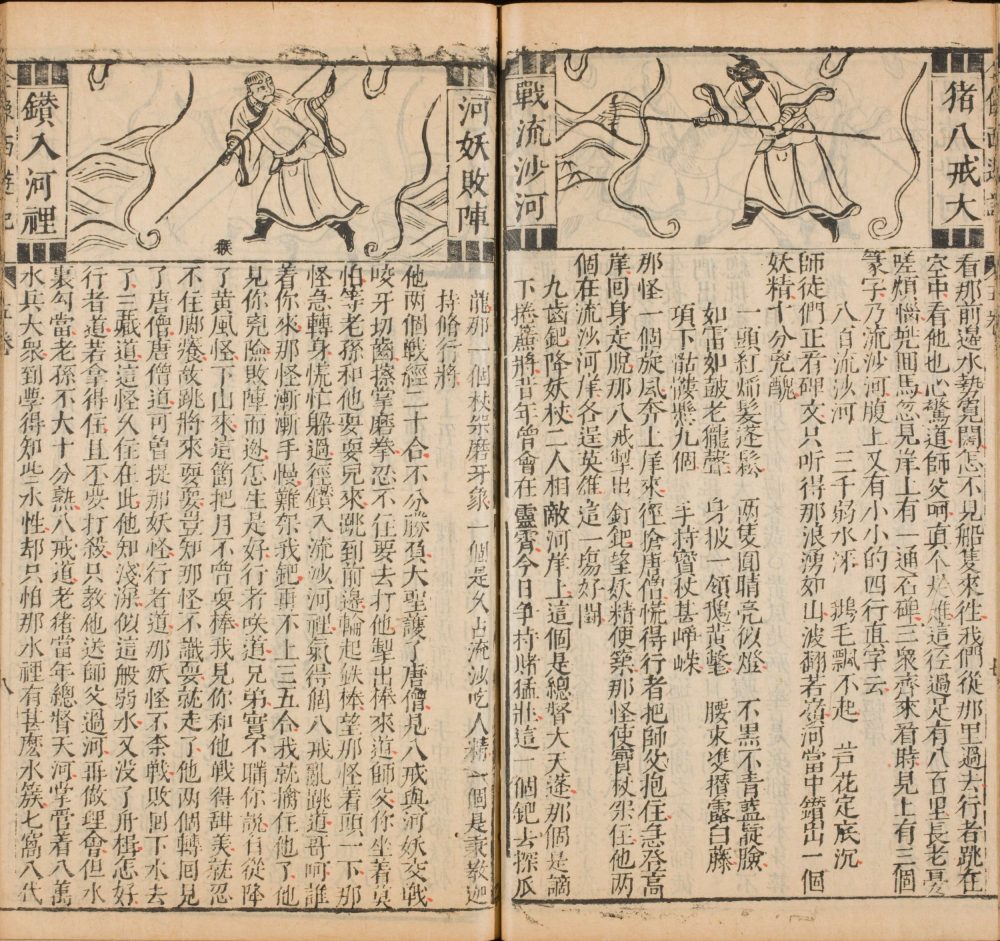 猪八戒大
戰流沙河
看那前邊水勢寬闊怎不見船隻來徃我們從那里過去行者跳在
空中看他也心驚道師父呵真个是难這徑過足有八百里長老憂
嗟煩惱兠囬馬忽見岸上有一通石碑三衆齊來看時見上有三個
篆字乃流沙河腹上又有小小的四行真字云
八百流沙河　三千弱水深　鵝毛飄不起　芦花定底沉
師徒們正看碑文只听得那浪湧如山波翻若嶺河當中鑚出一個
妖精十分兇醜
一頭紅焰髮蓬鬆　兩隻圓睛亮似燈　不黑不青藍靛臉
如雷如鼓老龍聲　身披一領鵝黄氅　腰束雙攢露白藤
項下骷髏懸九個　手持寳杖甚崢嶸
那怪一個旋風奔上岸來徑搶唐僧慌得行者把師父抱住急登高
岸回身走脫那八戒掣出釘鈀望妖精便築那怪使寳杖架住他兩
個在流沙河岸各逞英雄這一塲好闘
九齒鈀降妖杖二人相敵河岸上這個是總督大天蓬那個是謫
下捲簾將昔年曾會在靈霄今日爭持賭猛壯這一個鈀去探爪
河妖敗陣
鑚入河裡
龍那一個杖架磨牙象一個是久占流沙吃人精一個是秉教迦
持脩行將
他两個戰經二十合不分勝負大聖護了唐僧見八戒與河妖交戰
咬牙切齒擦掌磨拳忍不住要去打他掣出棒來道師父你坐着莫
怕等老孫和他耍耍兒來跳到前邊輪起鉄棒望那怪着頭一下那
怪急轉身慌忙躲過徑鑚入流沙河裡氣得個八戒亂跳道哥呵誰
着你來那怪漸漸手慢難架我鈀再不上三五合我就擒住他了他
見你兇險敗陣而逃怎生是好行者咲道兄弟實不瞞你說自從降
了黄風怪下山來這箇把月不曾耍棒我見你和他戰得甜美就忍
不住脚癢故跳將來耍耍豈知那怪不識耍就走了他两個轉回見
了唐僧唐僧道可曾捉那妖怪行者道那妖怪不柰戰敗回下水去
了三藏道這怪久住在此他知淺深似這般弱水又没了舟楫怎好
行者道若拿得住且不要打殺只教他送師父過河再做理會但水
裏勾當老孫不大十分熟八戒道老猪當年總督天河掌管着八萬
水兵大衆到要得知些水性却只怕那水裡有甚麽水簇七窩八代
像西遊記
五卷
八